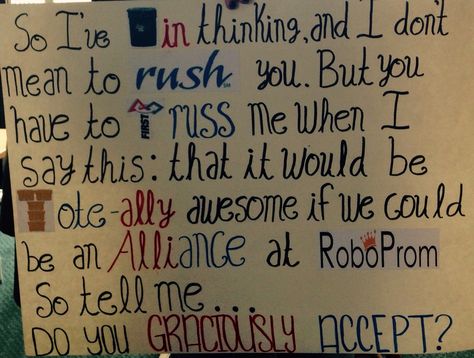 So I've in thinking, and I don't
mean to rush you. But you
have to FIRST russ me when I
say this: that it would be
Tote-ally awesome if we could
be an Alliance at RoboProm
So tell me ...
DO YOU GRACIOUSLY ACCEPT?